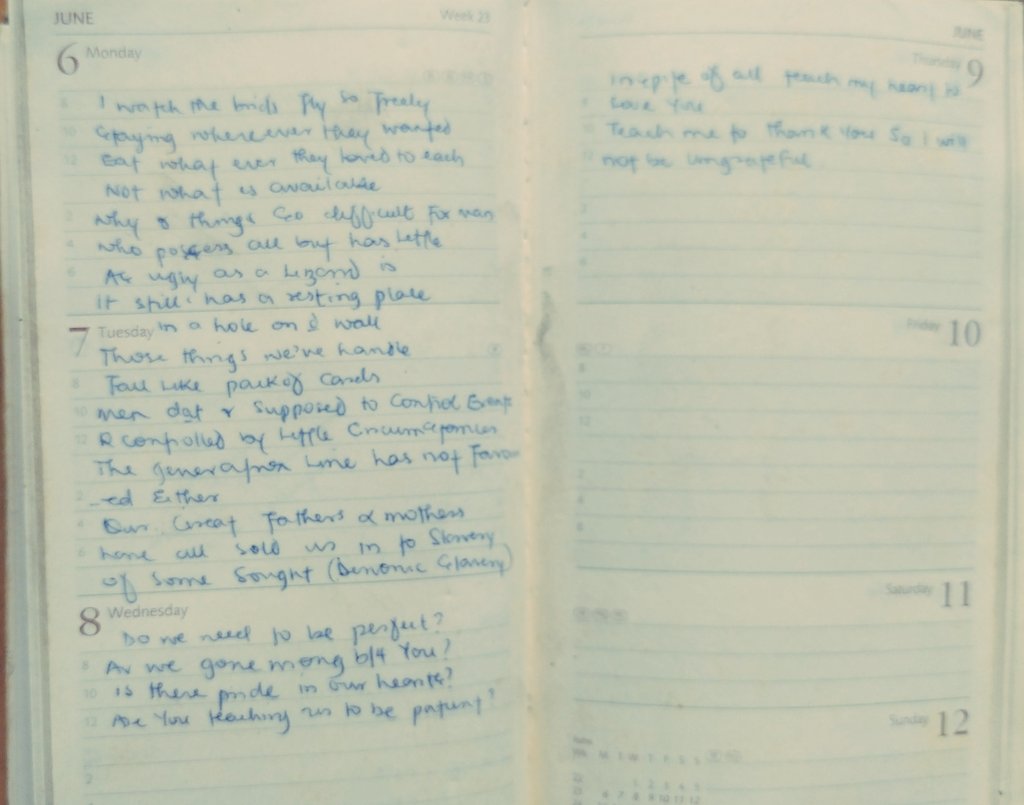 JUNE
Week 23
6 Monday
I watch the birds fly so freely
Staying whereever they wanted
Eat what ever they loved to each
Not what is available
Why & things Go difficult for man
Who possess all but has little
As ugly as a Lizard is
It still has a resting place
in a hole on d wall
7 Tuesday
Those things we've handle
Fall Like pack of Cards
Men dat r supposed to Control Event
R controlled by little Circumstances
The generation Line has not Favou
-red Either
Our Great Fathers & mothers
have all sold us in to Slavery
of some Sought (Demonic Slavery)
8 Wednesday
Do we need to be perfect?
Av we gone wrong b/4 You?
Is there pride in our hearts?
Are You teaching us to be patient?
JUNE
Thursday 9
Inspite of all teach my heart to
Love You
Teach me to Thank You So I will
not be Ungrateful
Friday 10
Saturday 11
Sunday 12
M T W T F S S
1 2 3 4 5
6 7 8 9 10 11 12